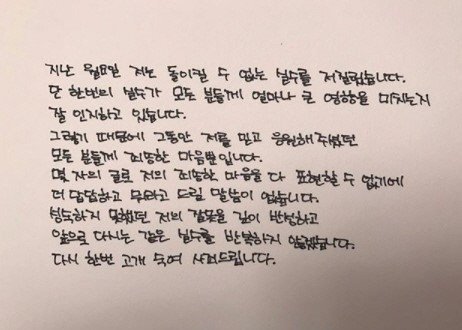 지난 월요일 저는 돌이킬 수 없는 실수를 저질렀습니다.
단 한번의 실수가 모든 분들께 얼마나 큰 영향을 미치는지
잘 인지하고 있습니다.
그렇기 때문에 그동안 저를 믿고 응원해주셨던
모든 분들께 죄송한 마음뿐입니다.
몇 자의 글로 저의 죄송한 마음을 다 표현할 수 없기에
더 답답하고 무어라 드릴 말씀이 없습니다.
성숙하지 못했던 저의 잘못을 깊이 반성하고
앞으로 다시는 같은 실수를 반복하지 않겠습니다.
다시 한번 고개 숙여 사죄드립니다.